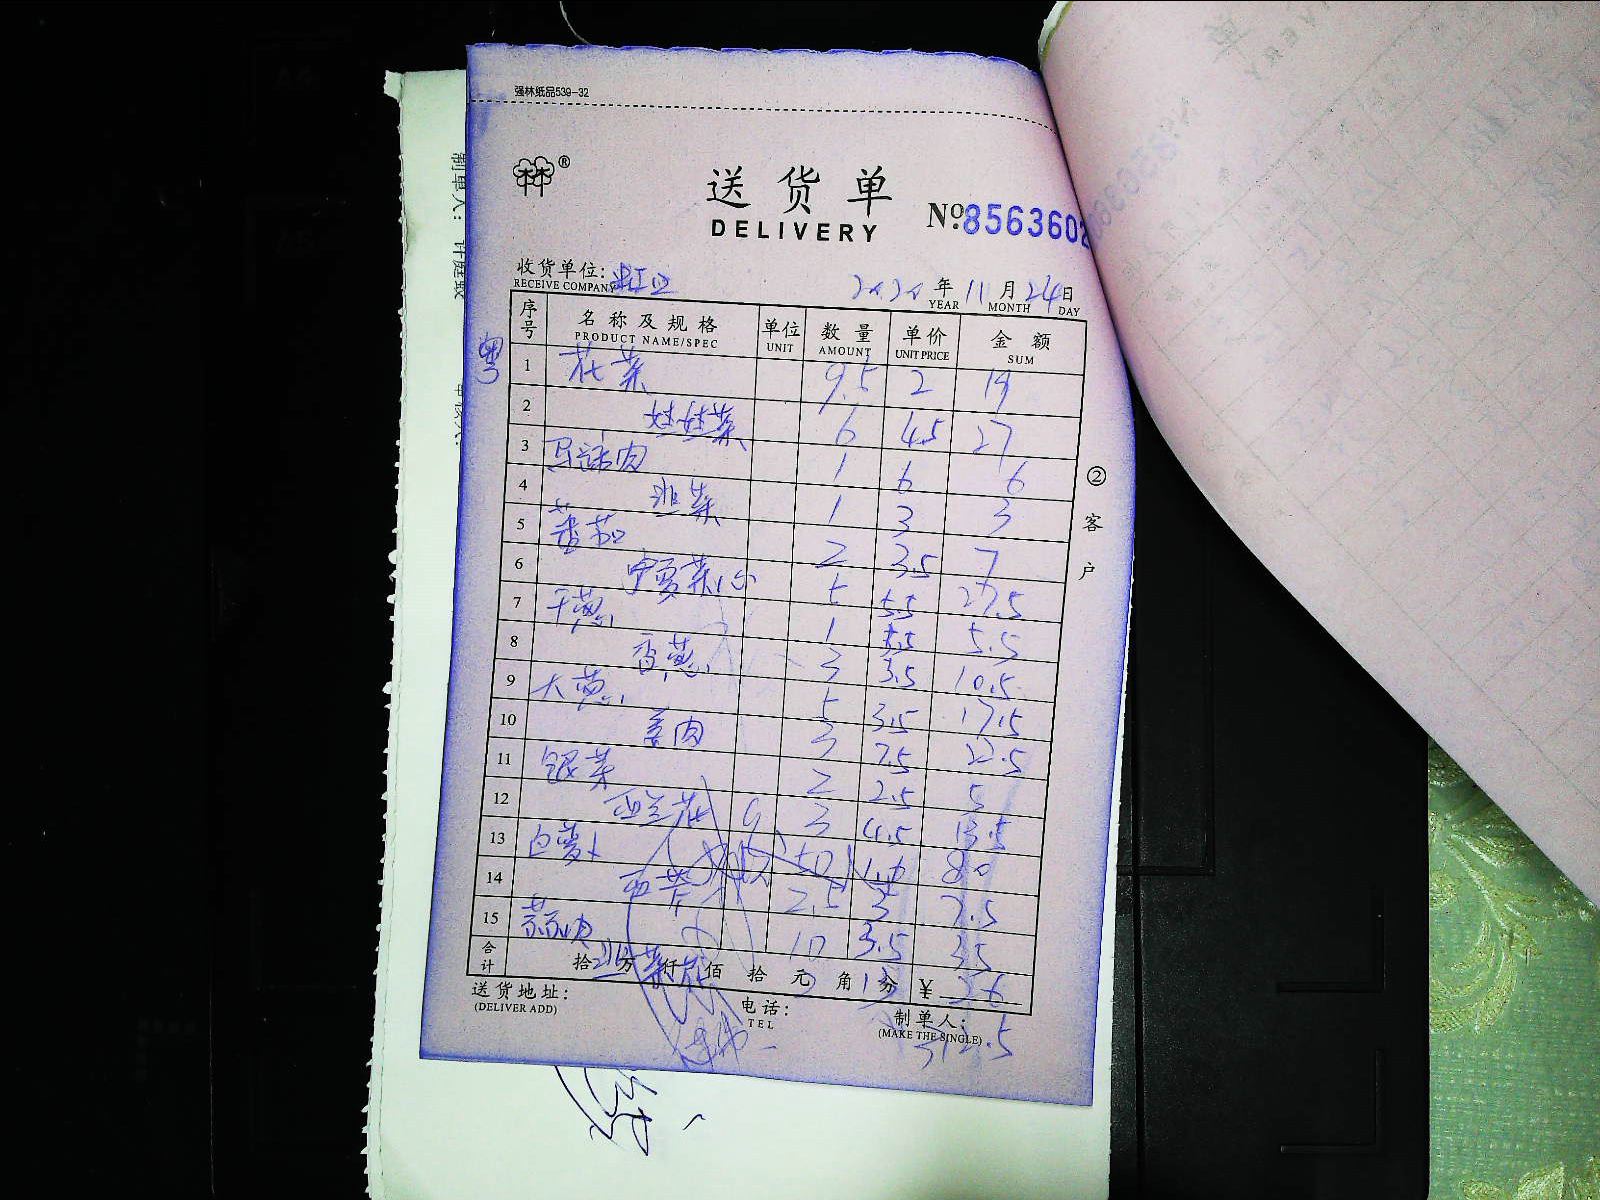 强林纸品539-32
林®
送货单
DELIVERY
№8563602
收货单位:
RECEIVE COMPANY
2020年11月24日
YEAR MONTH DAY
粤
序号 名称及规格 单位 数量 单价 金额
PRODUCT NAME/SPEC UNIT AMOUNT UNIT PRICE SUM
1 花菜 9.5 2 19
2 娃娃菜 6 4.5 27
3 马蹄肉 1 6 6
4 韭菜 1 3 3
5 番茄 2 3.5 7
6 宁夏菜心 5 5.5 27.5
7 干葱 1 5.5 5.5
8 香葱 3 3.5 10.5
9 大葱 5 3.5 17.5
10 姜肉 3 7.5 22.5
11 银芽 2 2.5 5
12 西兰花 3 4.5 13.5
13 白萝卜 50 1.6 80
14 西芹 2.5 3 7.5
15 蒜肉 10 3.5 35
合计 拾 万 仟 佰 拾 元 角 分 ¥ 26
312.5
送货地址:
(DELIVER ADD)
电话:
TEL
制单人:
(MAKE THE SINGLE)
②客户
制单人: